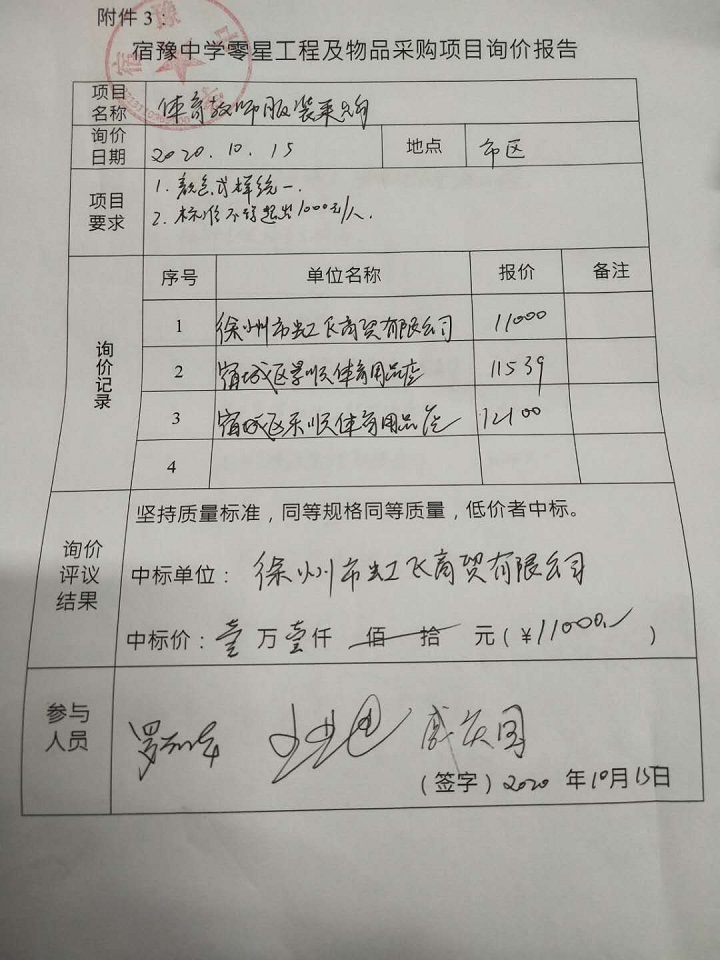 附件3：
宿豫中学零星工程及物品采购项目询价报告
项目名称 体育教师服装采购
询价日期 2020.10.15 地点 市区
项目要求 1.颜色式样统一.
2.标准不得超出1000元/人.
询价记录
序号 单位名称 报价 备注
1 徐州市虹飞商贸有限公司 11000
2 宿城区景顺体育用品店 11539
3 宿城区乐顺体育用品店 12100
4
询价评议结果
坚持质量标准，同等规格同等质量，低价者中标。
中标单位：徐州市虹飞商贸有限公司
中标价：壹万壹仟佰拾元(¥11000.)
参与人员
(签字)2020年10月15日